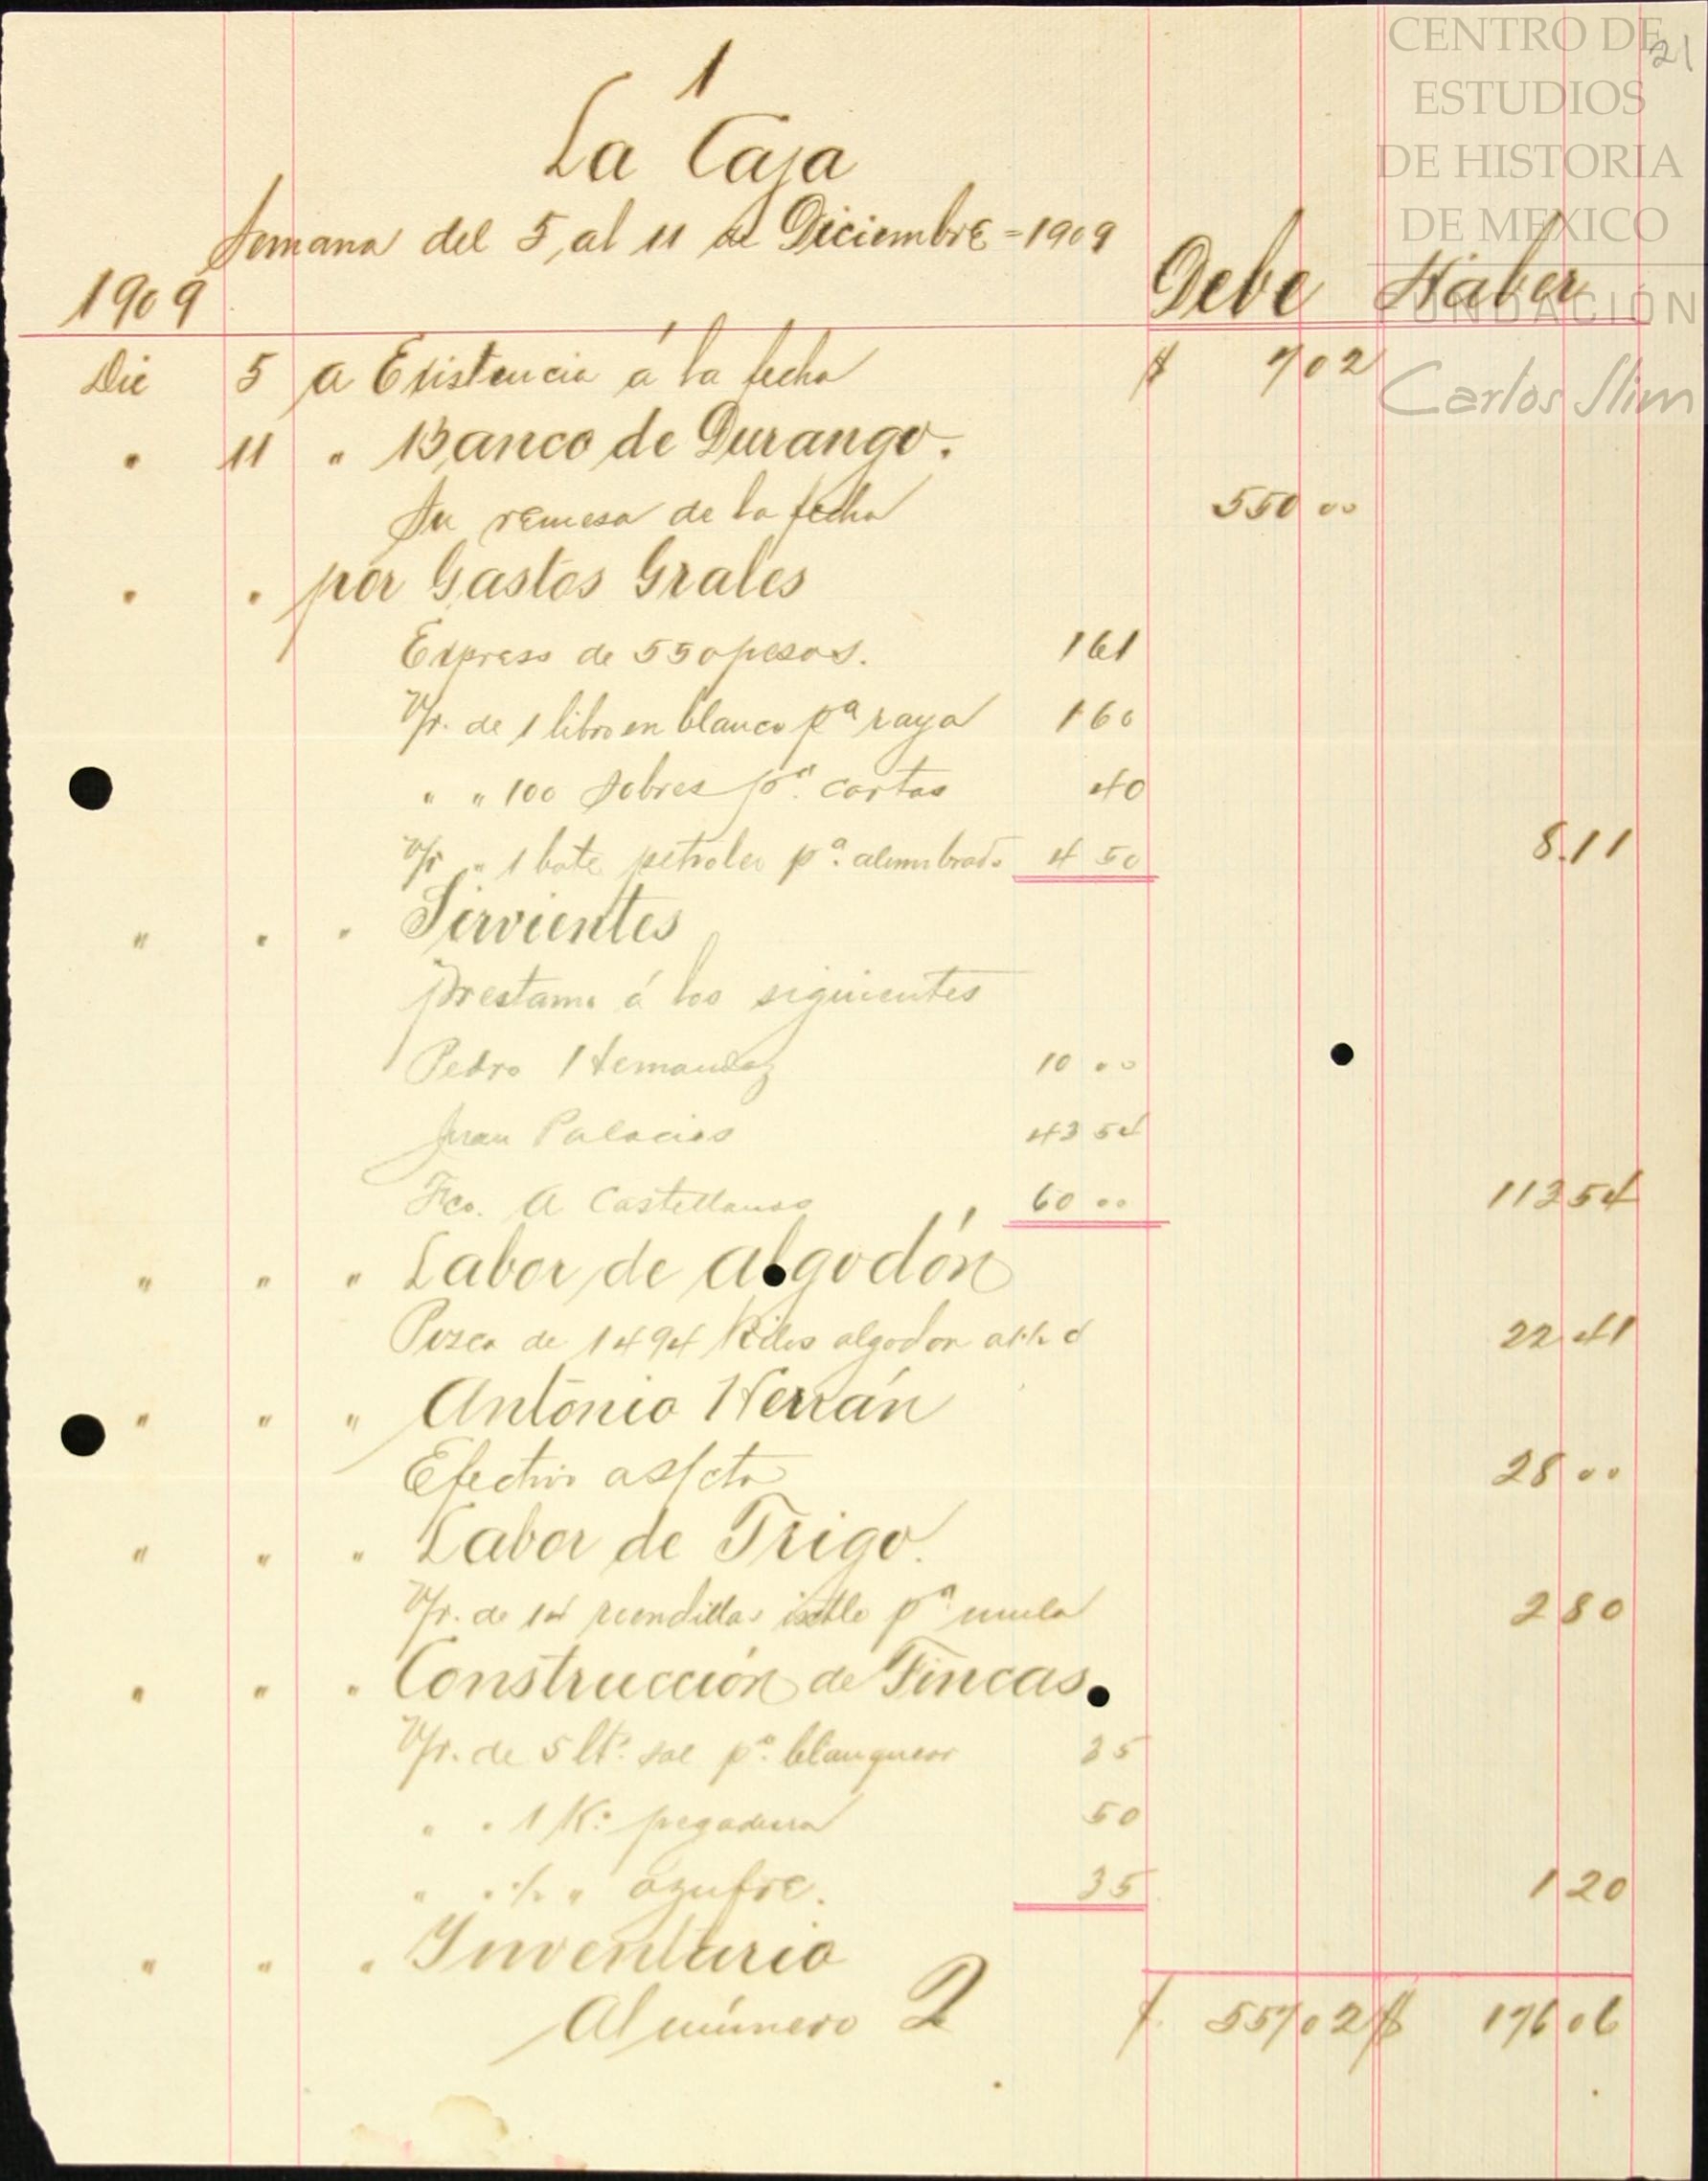 CENTRO DE
ESTUDIOS
DE HISTORIA
DE MEXICO
FUNDACIÓN
Carlos Slim
21
1
La Caja
Semana del 5 al 11 de Diciembre = 1909
1909 Debe Haber
Dic 5 a Existencia á la fecha $ 7 02
" 11 " Banco de Durango.
Su remesa de la fecha 550 00
" " por Gastos Grales
Express de 550 pesos. 1 61
V/r. de 1 libro en blanco pª raya 1 60
" " 100 sobres pª. cartas 40
V/r " 1 bote petroleo pª. alumbrado 4 50 8.11
" " " Sirvientes
prestamo á los siguientes
Pedro Hernandez 10 00
Juan Palacios 43 54
Fco. A Castellanos 60 00 113 54
" " " Labor de algodón
Pizca de 1494 Kilos algodon a 1½ c 22 41
" " " Antonio Herrán
Efectivo a s/cta 28 00
" " " Labor de Trigo.
V/r. de riendillas ixtle pª mula 2 80
" " " Construcción de Fincas.
V/r. de 5 lts. sal pª. blanquear 35
" " 1 K: pegadura 50
" " ½ " azufre. 35 1 20
" " " Inventario
Al número 2 $ 557 02 $ 176 06